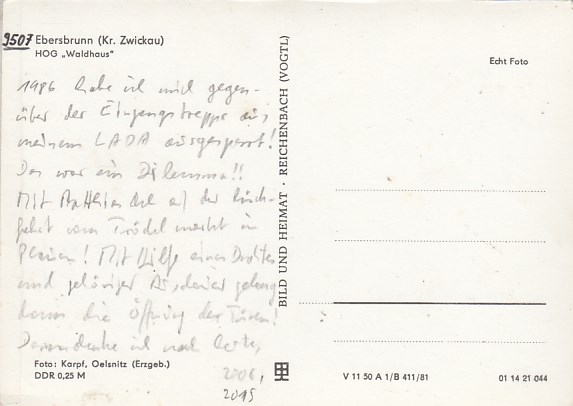 9507 Ebersbrunn (Kr. Zwickau)
HOG „Waldhaus"
Echt Foto
1986 habe ich mich gegen-
über der Eingangstreppe aus
meinem LADA ausgesperrt!
Das war ein Dilemma!!
Mit auf der Rück-
fahrt vom Trödelmarkt in
Plauen! Mit Hilfe eines Drahtes
und gehöriger Ausdauer gelang
dann die Öffnung der Türen!
Daran denke ich noch heute,
2006,
2015
BILD UND HEIMAT · REICHENBACH (VOGTL)
Foto: Karpf, Oelsnitz (Erzgeb.)
DDR 0,25 M
V 11 50 A 1/B 411/81
01 14 21 044